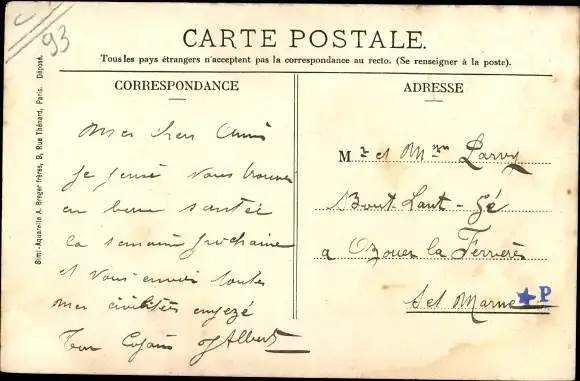 93
CARTE POSTALE.
Tous les pays étrangers n'acceptent pas la correspondance au recto. (Se renseigner à la poste).
Simi-Aquarelle A. Breger frères, 9, Rue Thénard, Paris. Déposé.
CORRESPONDANCE
Mes chers Amis
Je pense vous trouver
en bonne santée
la semaine prochaine
et vous envoi toutes
mes civilités
Albert
ADRESSE
Mr et Mme Larvy
Bout
a Ozouer la Ferrière
S et Marne
P